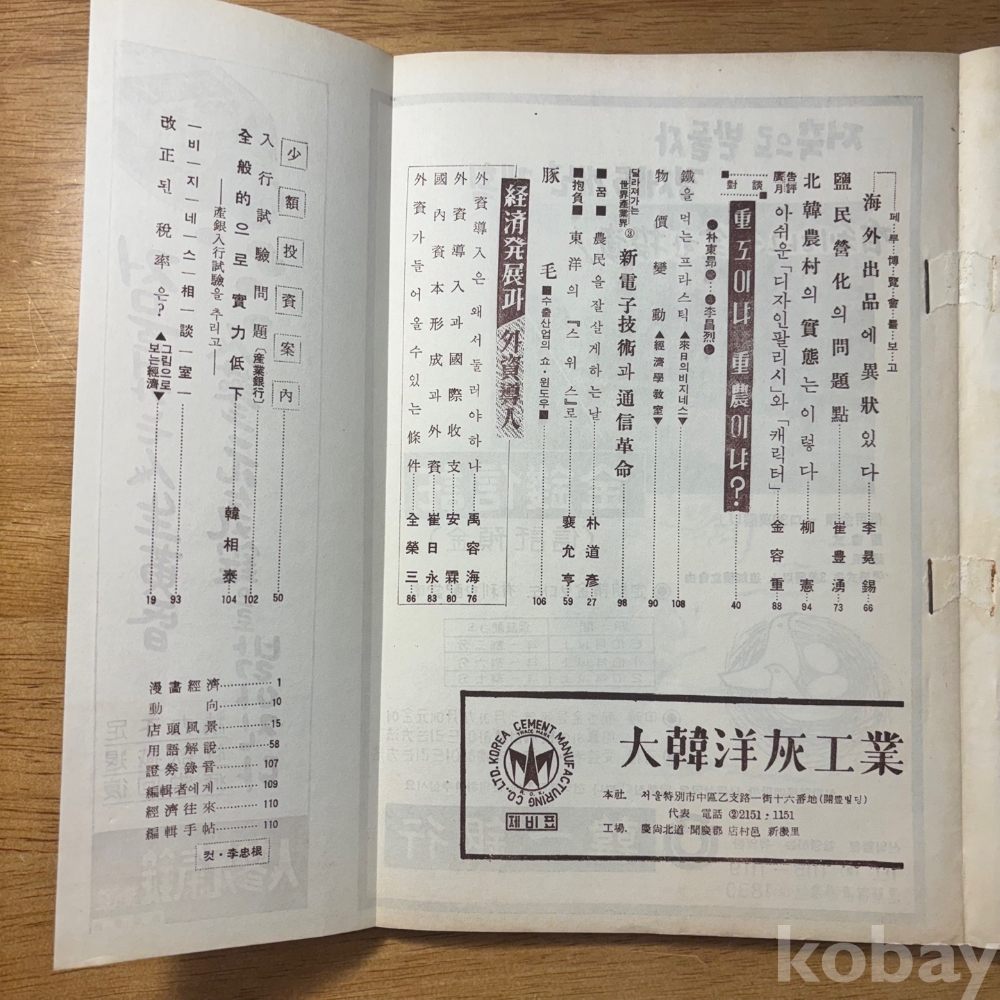 페루博覽會를보고
海外出品에異狀있다 李晃錫 66
鹽民營化의問題點 崔豊湧 73
北韓農村의實態는이렇다 柳憲 94
廣告月評 아쉬운「디자인팔리시」와「캐릭터」 金容重 88
■對談■
重工이냐 重農이냐? 40
●朴東昴 李昌烈
鐵을 먹는 프라스틱▲來日의비지네스▼ 108
物價變動▲經濟學敎室▼ 90
달라져가는世界産業界③ 新電子技術과 通信革命 98
■꿈■ 農民을 잘살게하는날 朴道彥 27
■抱負■ 東洋의『스위스』로 裵允亨 59
豚毛■수출산업의 쇼・윈도우■ 106
経済発展과 外資導入
外資導入은 왜서둘러야하나 禹容海 76
外資導入과 國際收支 安霖 80
國內資本形成과 外資 崔日永 83
外資가들어올수있는條件 全榮三 86
少額投資案內 50
入行試驗問題〔産業銀行〕 102
全般的으로 實力低下 韓相泰 104
―産銀入行試驗을 추리고―
―비―지―네―스―相―談―室― 93
改正된 稅率은?▲그림으로보는經濟▼ 19
漫畵經濟 1
動向 10
店頭風景 15
用語解說 58
證券錄音 107
編輯者에게 109
經濟往來 110
編輯手帖 110
컷・李忠根
大韓洋灰工業
KOREA CEMENT MANUFACTURING CO., LTD.
TRADE MARK
R.O.K.
제비표
本社. 서울特別市中區乙支路一街十六番地(開豊빌딩)
代表 電話 ②2151・1151
工場. 慶尙北道 聞慶郡 店村邑 新機里
kobay